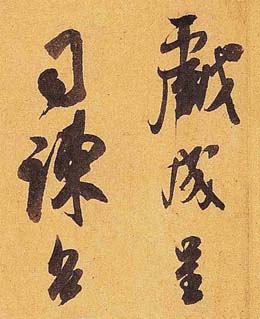 戲成呈
司諫台